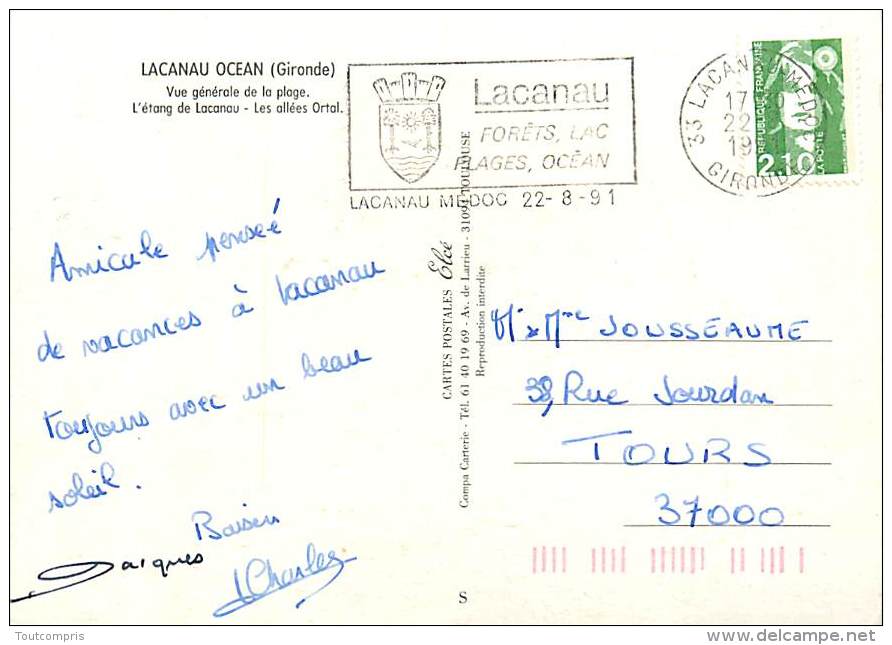 LACANAU OCEAN (Gironde)
Vue générale de la plage.
L'étang de Lacanau - Les allées Ortal.
Lacanau
FORÊTS, LAC
PLAGES, OCÉAN
LACANAU MEDOC 22-8-91
33 LACANAU MEDOC
17
22
19
GIRONDE
REPUBLIQUE FRANÇAISE
2,10
LA POSTE
Amicale pensée
de vacances à Lacanau
toujours avec un beau
soleil.
Baisers
Jacques
Charles
CARTES POSTALES Elcé
Compa Carterie - Tél. 61 40 19 69 - Av. de Larrieu - 31094 TOULOUSE
Reproduction interdite
Mr & Mme JOUSSEAUME
38, Rue Jourdan
TOURS
37000
S
Toutcompris
delcampe.net